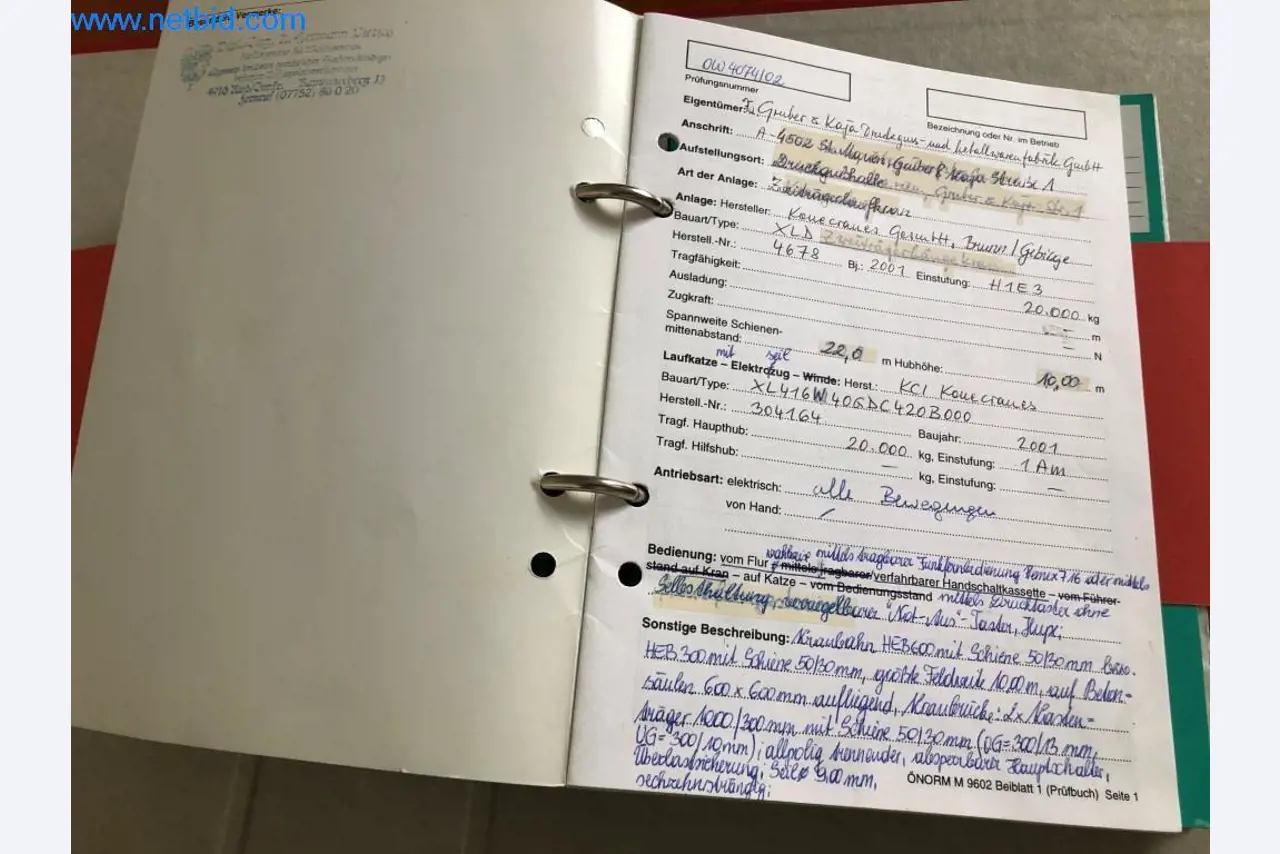 www.netbid.com
Vermerke:
4715
(07732)
OW 4074/02
Prüfungsnummer
Bezeichnung oder Nr. im Betrieb
Eigentümer: Fa. Gruber & Kaja Druckguss- und Metallwarenfabrik GmbH
Anschrift: A-4502 St. Marien, Gruber & Kaja Straße 1
Aufstellungsort: Druckgußhalle neu, Gruber & Kaja-Str. 1
Art der Anlage: Zweiträgerlaufkran
Anlage: Hersteller: Konecranes GesmbH, Brunn/Gebirge
Bauart/Type: XLD Zweiträgerhängekran
Herstell.-Nr.: 4678 Bj.: 2001 Einstufung: H1E3
Tragfähigkeit: 20.000 kg
Ausladung: – m
Zugkraft: – N
Spannweite Schienen-
mittenabstand: 22,0 m Hubhöhe: 10,00 m
mit seil
Laufkatze – Elektrozug – Winde: Herst.: KCI Konecranes
Bauart/Type: XL416W40GDC420B000
Herstell.-Nr.: 304164 Baujahr: 2001
Tragf. Haupthub: 20.000 kg, Einstufung: 1Am
Tragf. Hilfshub: – kg, Einstufung: –
Antriebsart: elektrisch: alle Bewegungen
von Hand: /
wahlweise mittels tragbarer Funkfernbedienung Remox 716 oder mittels
Bedienung: vom Flur mittels tragbarer/verfahrbarer Handschaltkassette – vom Führer-
stand auf Kran – auf Katze – vom Bedienungsstand mittels Drucktaster ohne
Selbsthaltung, verriegelbarer "Not-Aus"-Taster, Hupe;
Sonstige Beschreibung: Kranbahn HEB600 mit Schiene 50/30mm bzw.
HEB 300 mit Schiene 50/30 mm, größte Feldweite 10,00m, auf Beton-
säulen 600 x 600mm aufliegend, Kranbrücke: 2x Kasten-
träger 1000/300mm mit Schiene 50/30mm (OG=300/13 mm,
UG=300/10mm); allpolig trennender, absperrbarer Hauptschalter,
Überlastsicherung; Seil ø 9,00 mm,
sechzehnsträngig;
ÖNORM M 9602 Beiblatt 1 (Prüfbuch) Seite 1